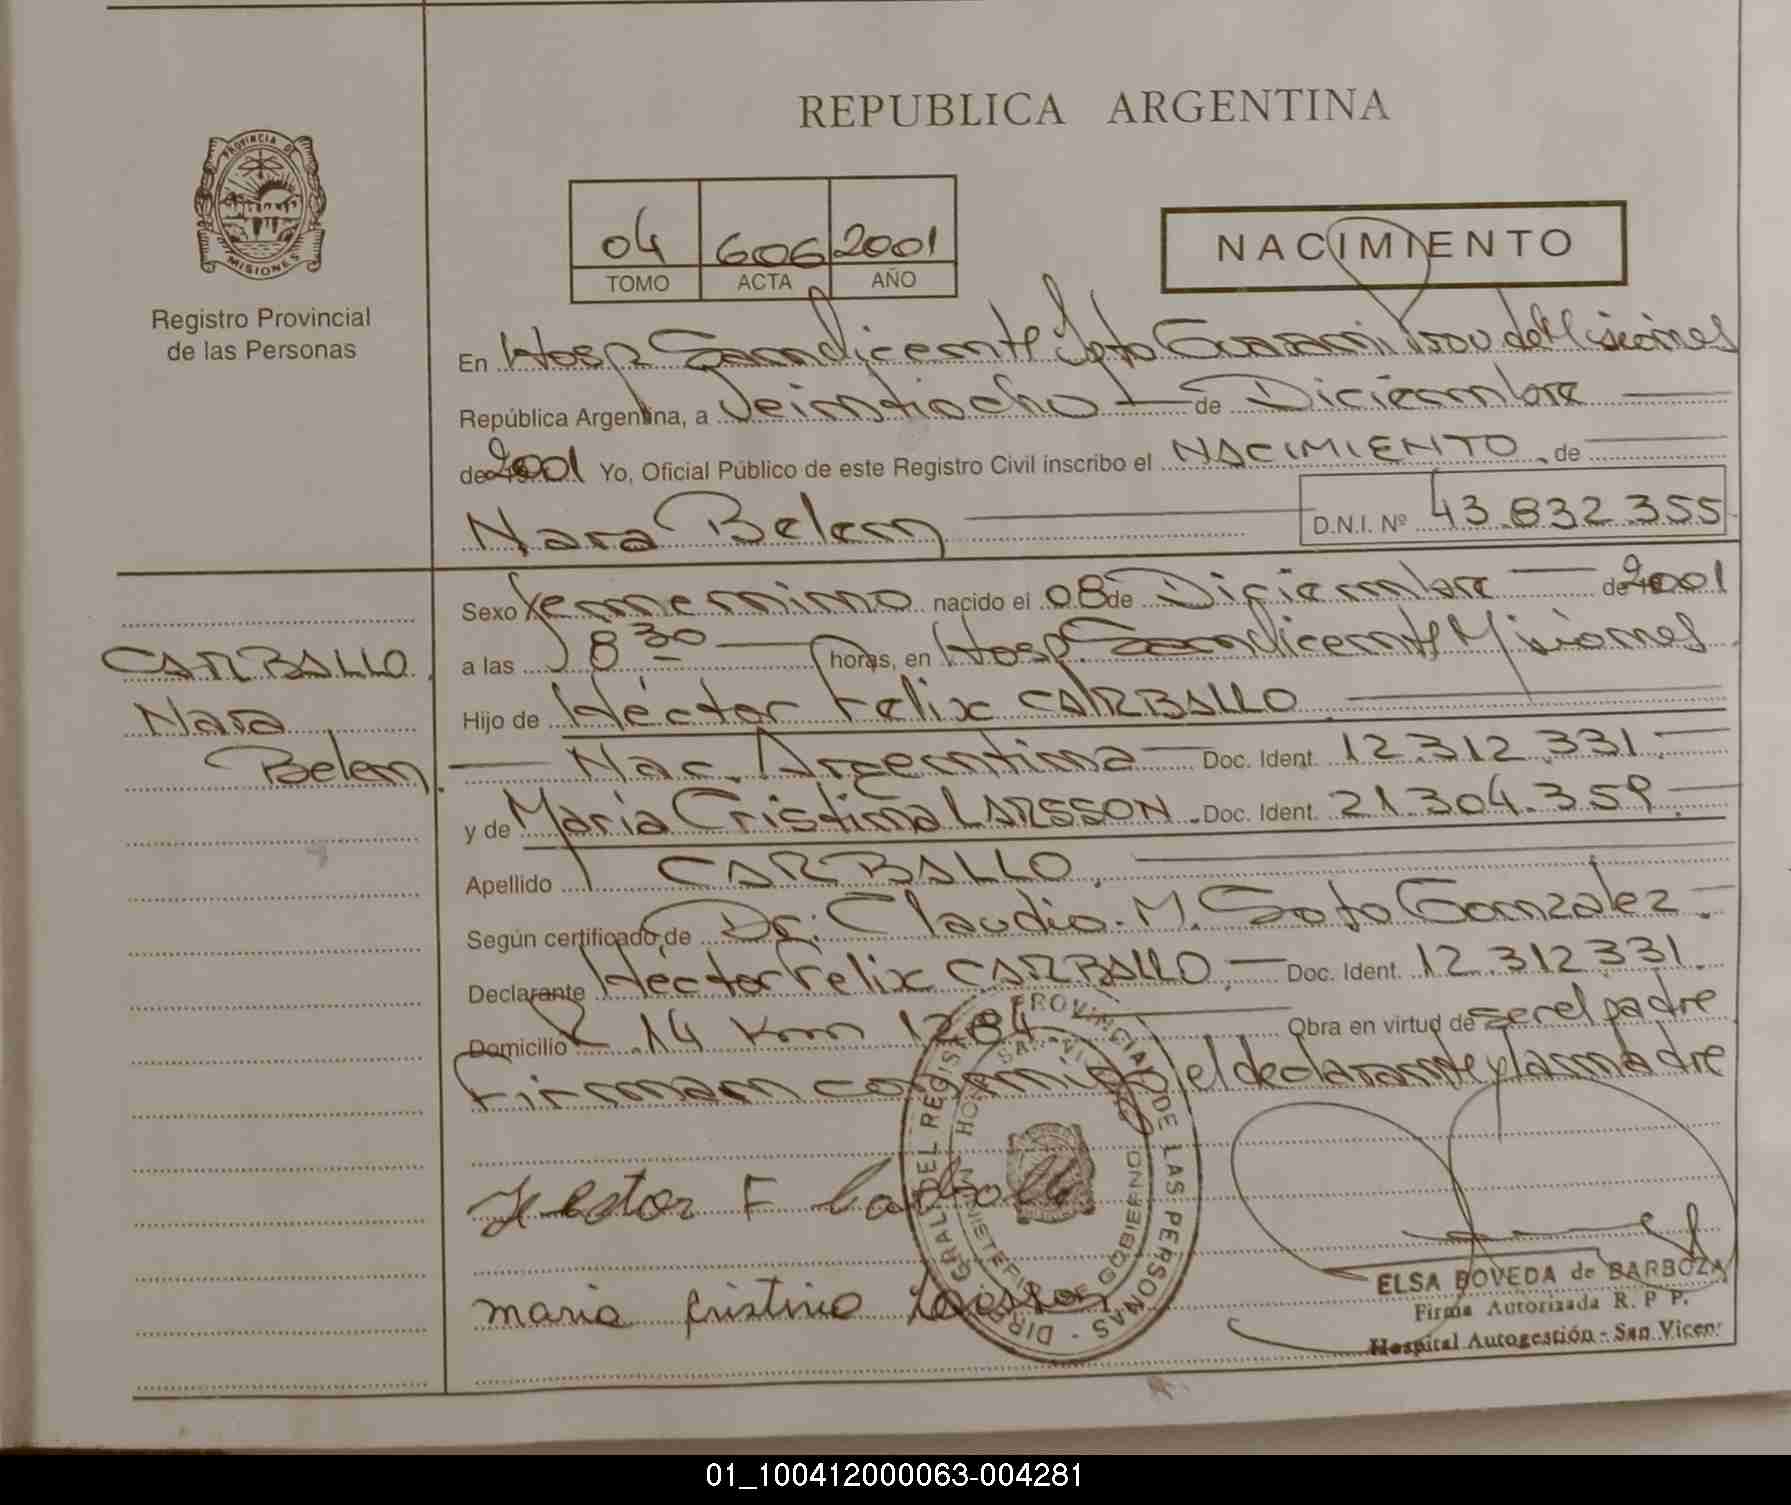 REPUBLICA ARGENTINA
PROVINCIA DE
MISIONES
Registro Provincial
de las Personas
04 606 2001
TOMO ACTA AÑO
NACIMIENTO
En Hosp San Vicente Dpto Guarani Prov de Misiones
República Argentina, a Veintiocho de Diciembre
de 2001 Yo, Oficial Público de este Registro Civil inscribo el NACIMIENTO de
Nara Belen D.N.I. Nº 43.832.355
Sexo Femenino nacido el 08 de Diciembre de 2001
a las 8 30 horas, en Hosp San Vicente Misiones
Hijo de Héctor Felix CARBALLO
Nac. Argentina Doc. Ident. 12.312.331.
y de Maria Cristina LARSSON. Doc. Ident. 21.304.359.
Apellido CARBALLO.
Según certificado de Dr. Claudio. M. Soto Gonzalez.
Declarante Héctor Felix CARBALLO. Doc. Ident. 12.312331.
Domicilio 14 Km 1284 Obra en virtud de ser el padre
Firman conmigo el declarante y la madre
CARBALLO.
Nara
Belen.
Hector F Carballo
maria cristina Larsson
DIREC. GRAL. DEL REGISTRO PROVINCIAL DE LAS PERSONAS
MINISTERIO DE GOBIERNO
ELSA BOVEDA de BARBOZA
Firma Autorizada R. P P.
Hospital Autogestión - San Vicen
01_100412000063-004281